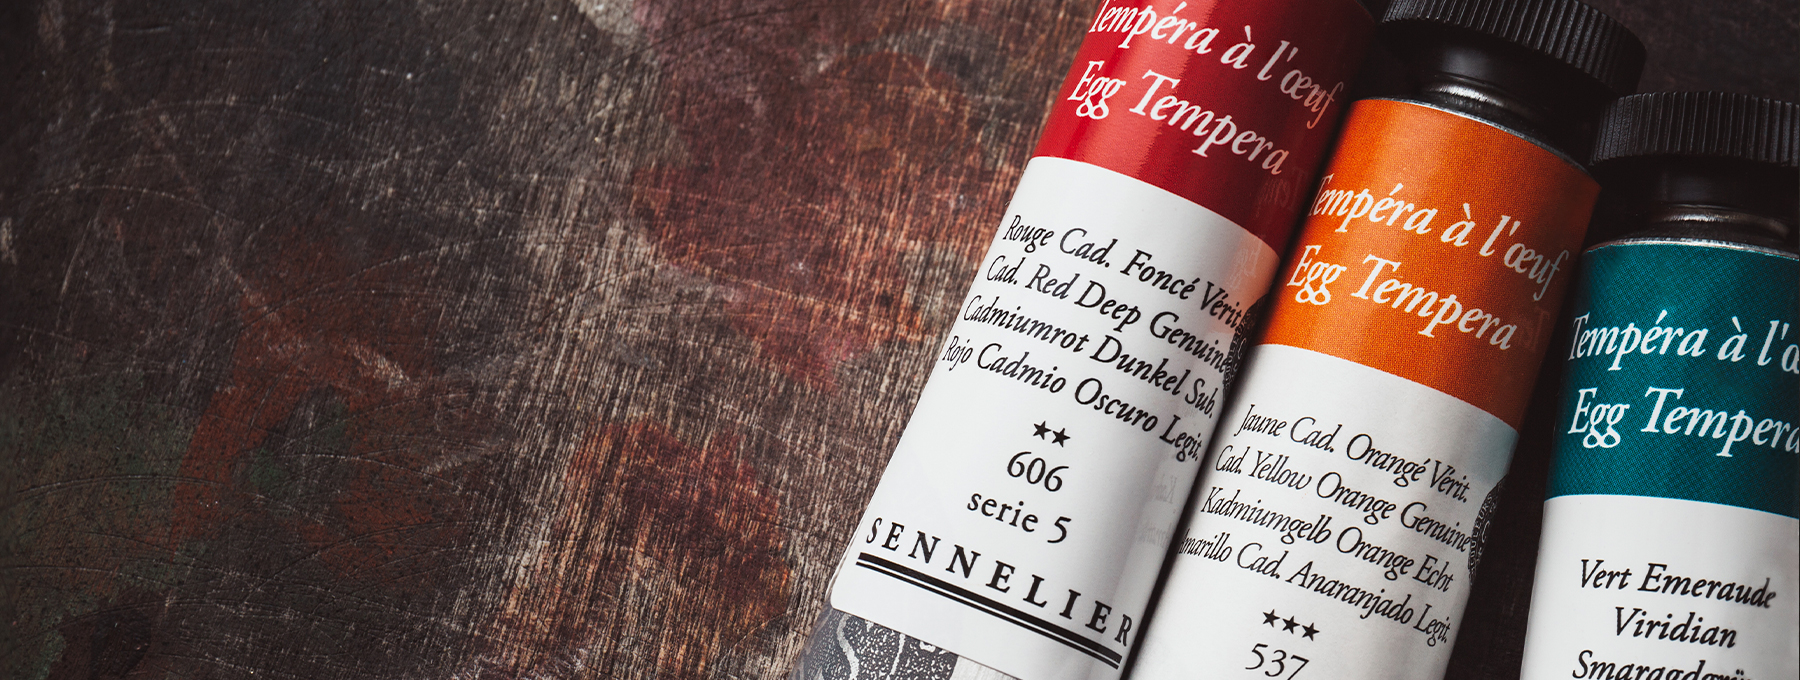 Tempéra à l'œuf
Egg Tempera
Rouge Cad. Foncé Vérit.
Cad. Red Deep Genuine
Cadmiumrot Dunkel Sub.
Rojo Cadmio Oscuro Legit.
★★
606
serie 5
SENNELIER
Tempéra à l'œuf
Egg Tempera
Jaune Cad. Orangé Vérit.
Cad. Yellow Orange Genuine
Kadmiumgelb Orange Echt
Amarillo Cad. Anaranjado Legit.
★★★
537
Tempéra à l'œ
Egg Tempera
Vert Emeraude
Viridian